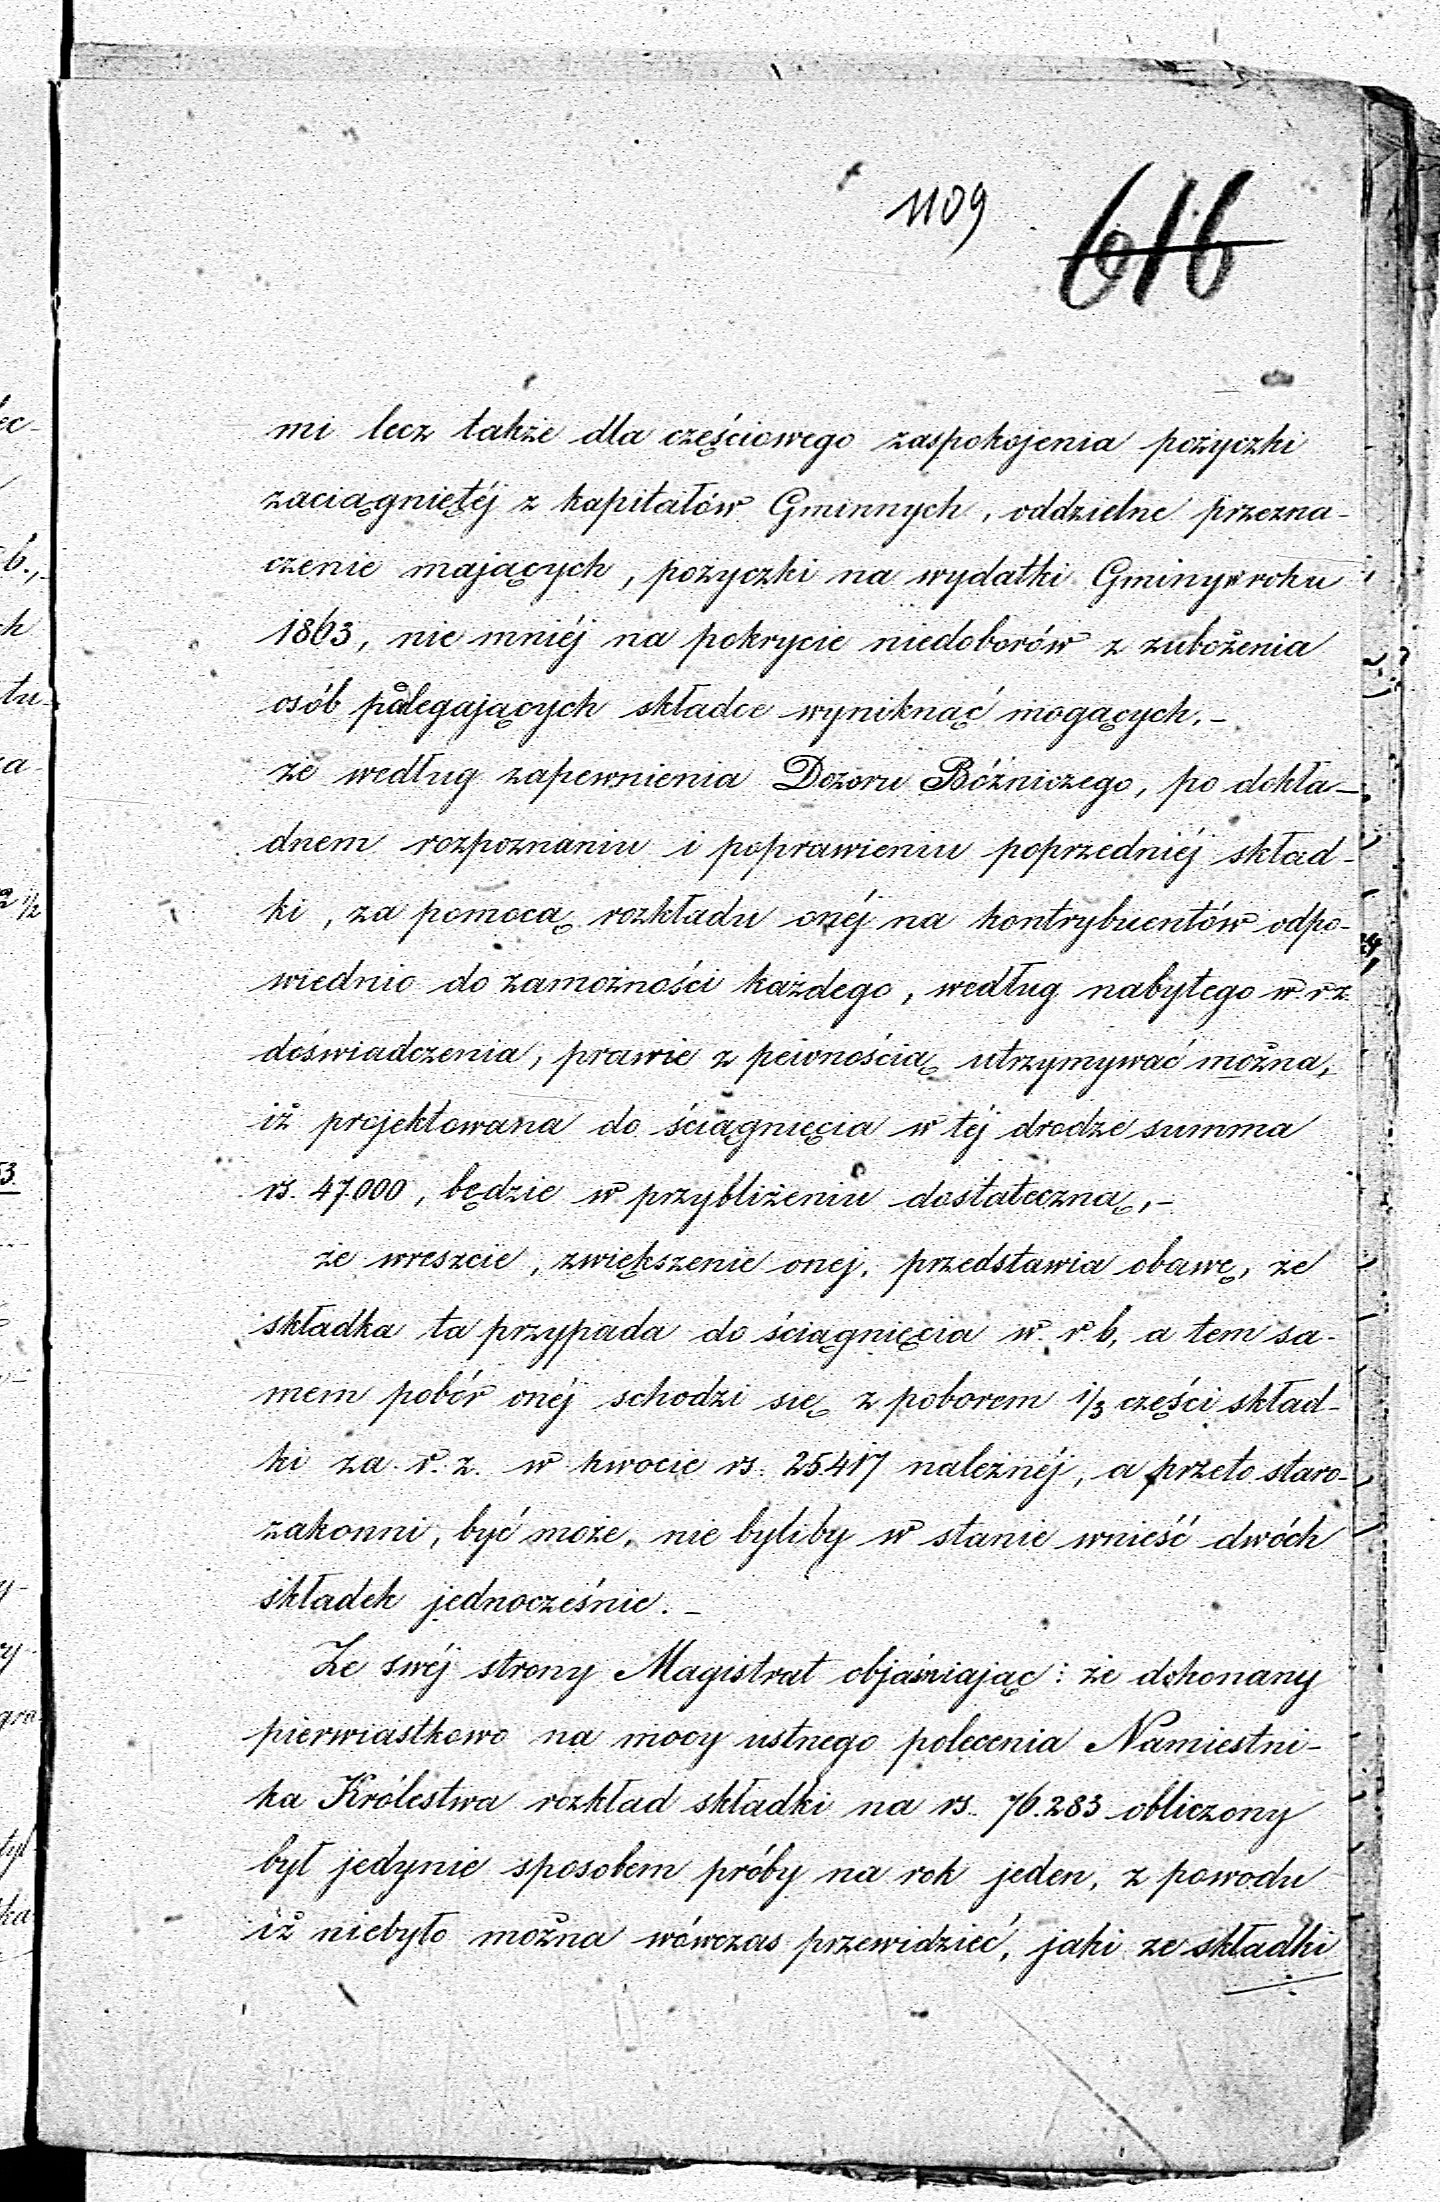 1109
616
mi lecz także dla częściowego zaspokojenia pożyczki
zaciągniętéj z kapitałów Gminnych, oddzielne przezna-
czenie mających, pożyczki na wydatki Gminy w roku
1863, nie mniéj na pokrycie niedoborów z zubożenia
osób polegających składce wyniknąć mogących.-
że według zapewnienia Dozoru Bóźniczego, po dokła-
dnem rozpoznaniu i poprawieniu poprzedniéj skład-
ki, za pomocą rozkładu onéj na kontrybuentów odpo-
wiednio do zamożności każdego, według nabytego w r.z.
doświadczenia, prawie z pewnością utrzymywać można,
iż projektowana do ściągnięcia w téj drodze summa
rs. 47.000, będzie w przybliżeniu dostateczną,-
że wreszcie, zwiększenie onej, przedstawia obawę, że
składka ta przypada do ściągnięcia w. r. b, a tem sa-
mem pobór onéj schodzi się z poborem 1/3 części skład-
ki za r. z. w kwocie rs. 25417 należnéj, a przeto staro-
zakonni, być może, nie byliby w stanie wnieść dwóch
składek jednocześnie.-
Ze swéj strony Magistrat objaśniając: że dokonany
pierwiastkowo na mocy ustnego polecenia Namiestni-
ka Królestwa rozkład składki na rs. 76.283 obliczony
był jedynie sposobem próby na rok jeden, z powodu
iż niebyło można wówczas przewidzieć, jaki ze składki